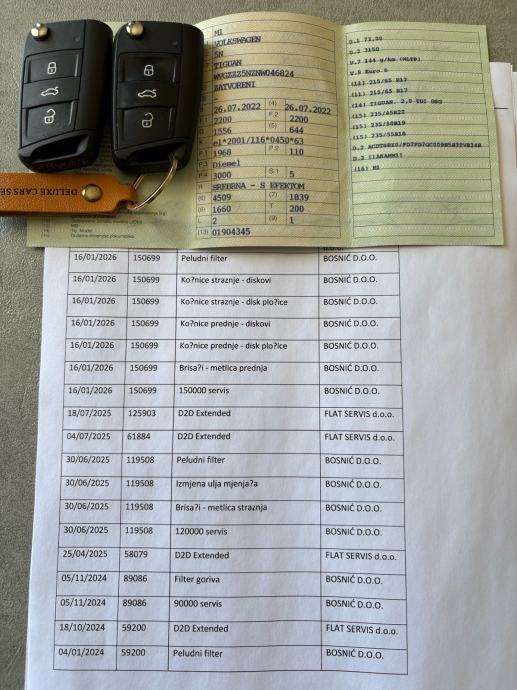 M1
VOLKSWAGEN
5N
TIGUAN
WVGZZZ5NZNW046824
ZATVORENI
26.07.2022 (4) 26.07.2022
F.1 2200 F.2 2200
G 1556 (5) 644
K e1*2001/116*0450*63
P.1 1968 P.2 110
P.3 Diesel
P.4 3000 S.1 5
R SREBRNA - S EFEKTOM
(6) 4509 (7) 1839
(8) 1660 T 200
L 2 (9) 1
(13) 01904345
U.1 73,00
U.2 3150
V.7 144 g/km (WLTP)
V.9 Euro 6
(11) 215/65 R17
(11) 215/65 R17
(14) TIGUAN, 2,0 TDI DSG
(15) 235/45R20
(15) 235/50R19
(15) 235/55R18
(16) M1
DELUXE CARS SE
16/01/2026 150699 Peludni filter BOSNIĆ D.O.O.
16/01/2026 150699 Ko?nice straznje - diskovi BOSNIĆ D.O.O.
16/01/2026 150699 Ko?nice straznje - disk plo?ice BOSNIĆ D.O.O.
16/01/2026 150699 Ko?nice prednje - diskovi BOSNIĆ D.O.O.
16/01/2026 150699 Ko?nice prednje - disk plo?ice BOSNIĆ D.O.O.
16/01/2026 150699 Brisa?i - metlica prednja BOSNIĆ D.O.O.
16/01/2026 150699 150000 servis BOSNIĆ D.O.O.
18/07/2025 125903 D2D Extended FLAT SERVIS d.o.o.
04/07/2025 61884 D2D Extended FLAT SERVIS d.o.o.
30/06/2025 119508 Peludni filter BOSNIĆ D.O.O.
30/06/2025 119508 Izmjena ulja mjenja?a BOSNIĆ D.O.O.
30/06/2025 119508 Brisa?i - metlica straznja BOSNIĆ D.O.O.
30/06/2025 119508 120000 servis BOSNIĆ D.O.O.
25/04/2025 58079 D2D Extended FLAT SERVIS d.o.o.
05/11/2024 89086 Filter goriva BOSNIĆ D.O.O.
05/11/2024 89086 90000 servis BOSNIĆ D.O.O.
18/10/2024 59200 D2D Extended FLAT SERVIS d.o.o.
04/01/2024 59200 Peludni filter BOSNIĆ D.O.O.